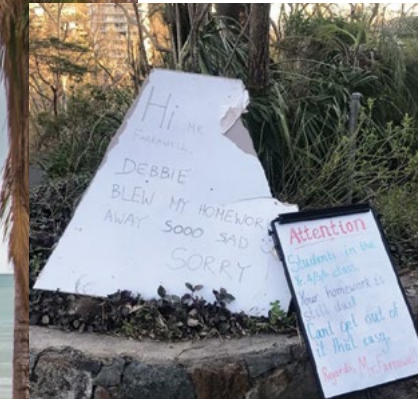 Hi MR
DEBBIE
BLEW MY HOMEWORK
AWAY SOOO SAD
SORRY
Attention
Students in the
class.
Your homework is
still due!
Can't get out of
it that easy.
Regards, Mr.